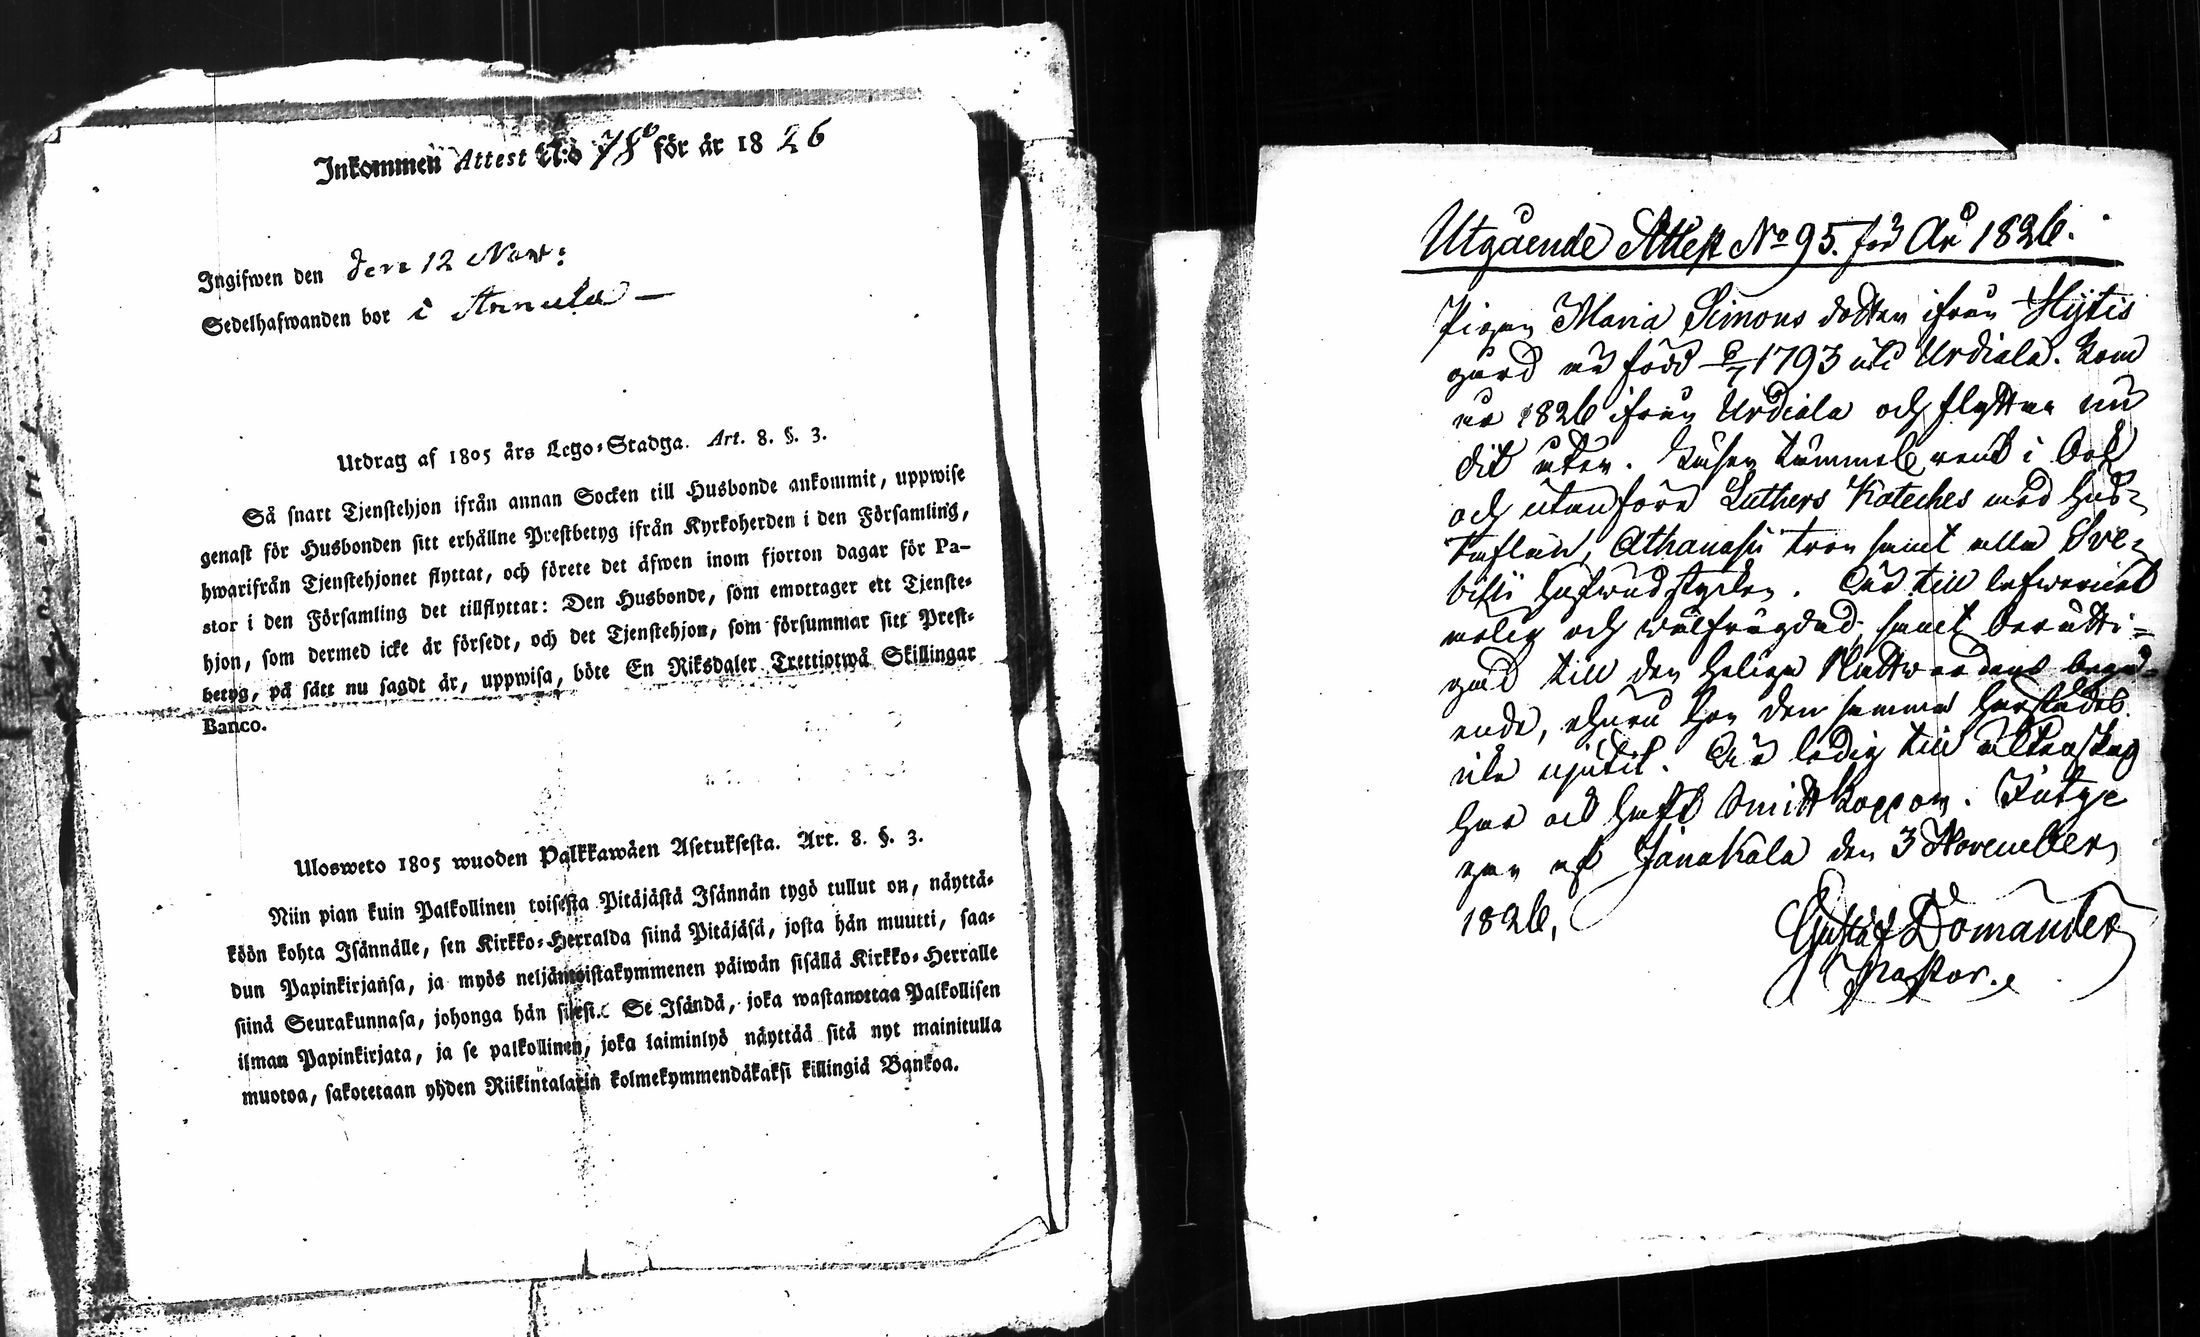 Inkommen Attest N:o 78 för år 1826
Ingifwen den den 12 Nov:
Sedelhafwanden bor i Annula —
Utdrag af 1805 års Lego-Stadga. Art. 8. §. 3.
Så snart Tjenstehjon ifrån annan Socken till Husbonde ankommit, uppwise
genast för Husbonden sitt erhållne Prestbetyg ifrån Kyrkoherden i den Församling,
hwarifrån Tjenstehjonet flyttat, och förete det äfwen inom fjorton dagar för Pa-
stor i den Församling det tillflyttat: Den Husbonde, som emottager ett Tjenste-
hjon, som dermed icke är försedt, och det Tjenstehjon, som försummar sitt Prest-
betyg, på sätt nu sagdt är, uppwisa, böte En Riksdaler Trettiotwå Skillingar
Banco.
Ulosweto 1805 wuoden Palkkawäen Asetuksesta. Art. 8. §. 3.
Niin pian kuin Palkollinen toisesta Pitäjästä Isännän tygö tullut on, näyttä-
köön kohta Isännälle, sen Kirkko-Herralda siinä Pitäjäsä, josta hän muutti, saa-
dun Papinkirjansa, ja myös neljäntoistakymmenen päiwän sisällä Kirkko-Herralle
siinä Seurakunnasa, johonga hän siirsi. Se Isändä, joka wastanottaa Palkollisen
ilman Papinkirjata, ja se palkollinen, joka laiminlyö näyttää sitä nyt mainitulla
muotoa, sakotetaan yhden Riikintalarin kolmekymmendäkaksi killingiä Bankoa.
Utgående Attest No 95. för År 1826.
Pigan Maria Simons dotter ifrån Hÿtis
gård är född 1793 uti Urdiala. Kom
år 1826 ifrån Urdiala och flyttar nu
dit åter. Läser tämmel. rent i bok
och utanföre Luthers Kateches med Hus-
taflan, Athanasii tron samt alla Sve-
bilii hufwudstycken. Är till lefwernet
ärlig och wälfrägdad, samt berätti-
gad till den heliga Nattwardens begå-
ende, ehuru hon den samma härstädes
icke njutit. Är ledig till äktenskap
har ock haft Smittkoppor. Intyg
gar af Janakala den 3 November
1826,
Gustaf Domander
Pastor.